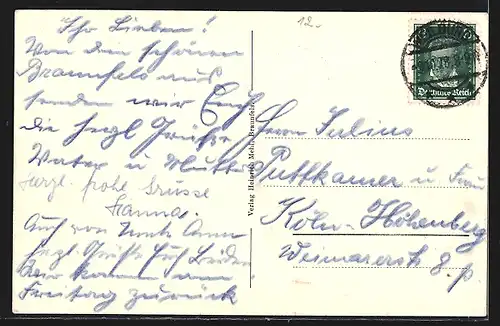 Ihr Lieben!
Von dem schönen
Braunfels aus
senden wir Euch
die herzl. Grüße
Vater u. Mutter
Herzl. frohe Grüsse
Hanna.
Auch von Tante Anna
herzl. Grüße Euch Beiden
Wir kommen am
Freitag zurück
12.-
Verlag Heinrich Mehl, Braunfels
Deutsches Reich
Herrn Julius
Puttkamer u. Frau
Köln-Höhenberg
Weimarerstr. 8. p